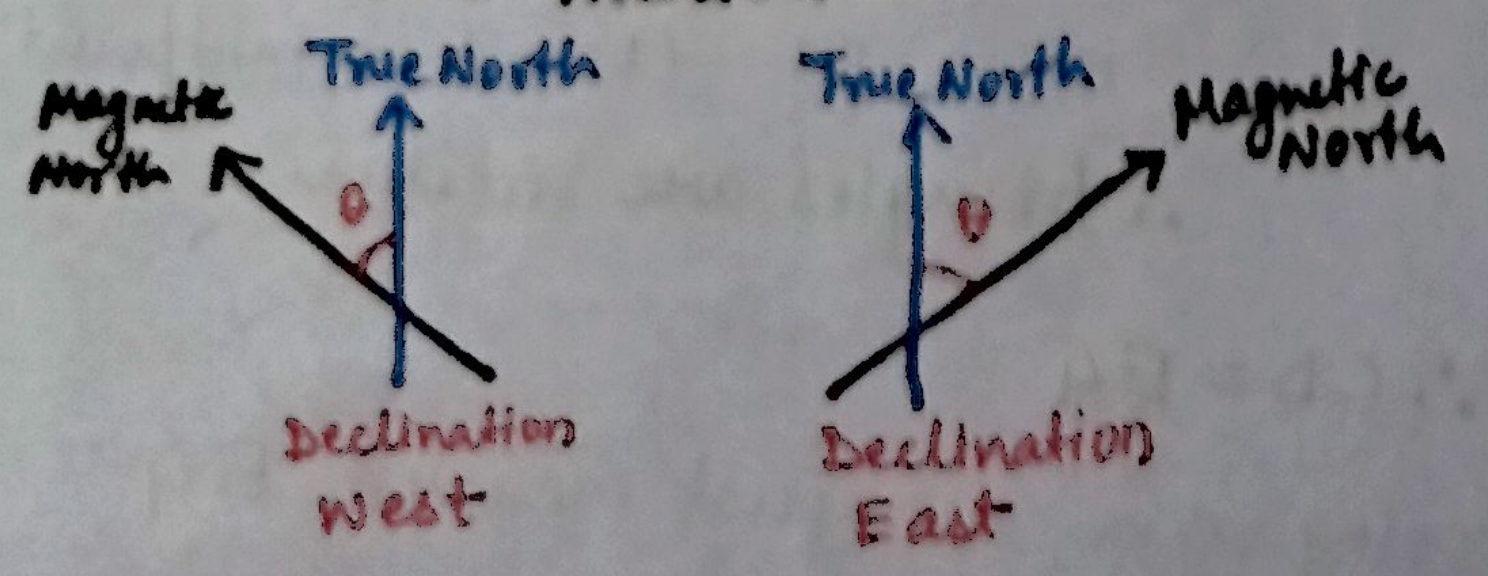 True North
Magnetic
North
θ
Declination
West
True North
Magnetic
North
θ
Declination
East